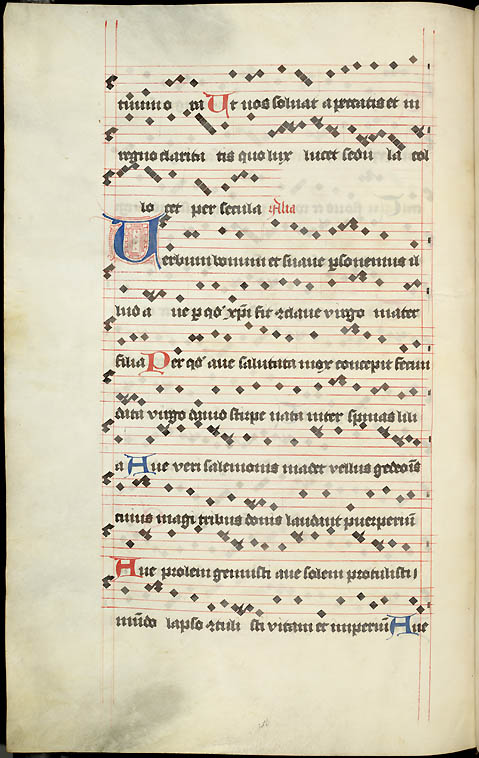 tinnino ta Ut nos soluat a peccatis et in
regno clarita tis quo lux lucet sedu la col
lo cet per secula Alia
Uerbum bonum et suaue psonemus il
lud a ue p qd' xpi fit 
 claue uirgo mater
filia Per qd' aue salutata mox concepit fecun
data uirgo dauid stirpe nata inter spinas lili
a Aue ueri salemonis mater uellus gedeois
cuius magi tribus donis laudant puerperiu
Aue prolem genuisti aue solem protulisti
mudo lapso 
tuli sti uitam et imperiu Aue